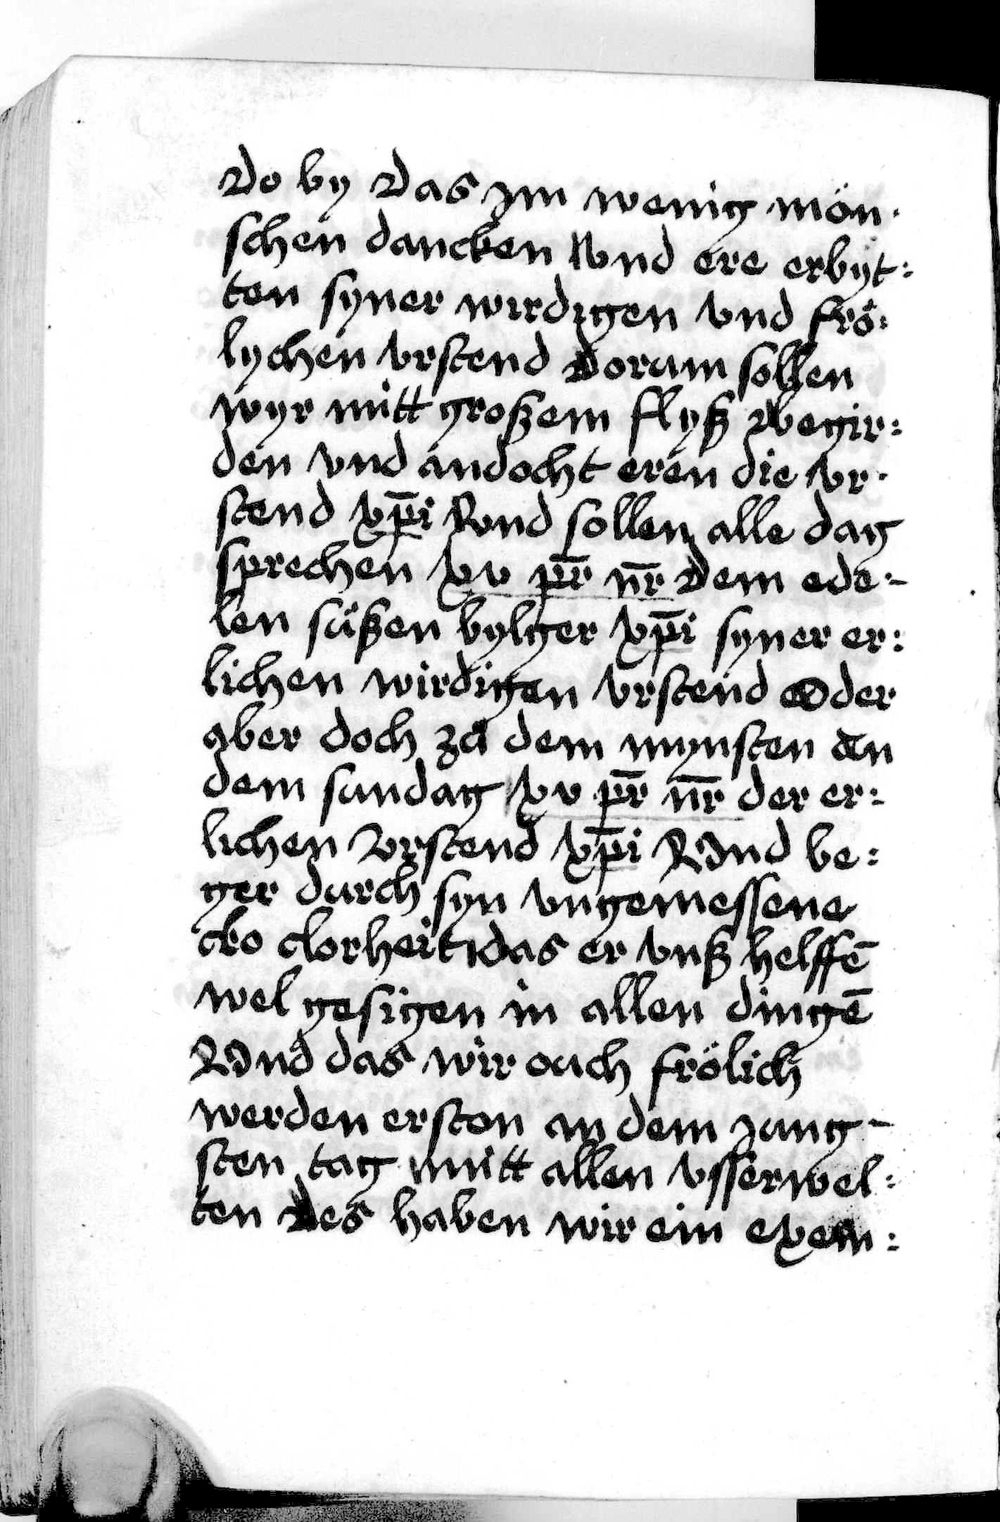 Do by Das jm wenig mön⸗
schen dancken Vnd ere erbyt⸗
ten syner wirdigen vnd frö⸗
lychen vrstend Dorum sollen
wyr mitt großem flyß Begir⸗
den vnd andocht eren die vr⸗
stend xp̄i Vnd sollen alle dag
sprechen xv pr̄ nr̄ Dem ede⸗
len süßen bylger xp̄i syner er⸗
lichen wirdigen vrstend Oder
aber doch zů dem mynsten an
dem sundag xv pr̄ nr̄ der er⸗
lichen Vrstend xp̄i Vnd be⸗
ger durch syn vngemessene
clorheit Das er vnß helffē
wel gesigen in allen dingē
Vnd das wir ouch frölich
werden erston an dem jung⸗
sten tag mitt allen vsserwel⸗
ten Des haben wir ein exem⸗